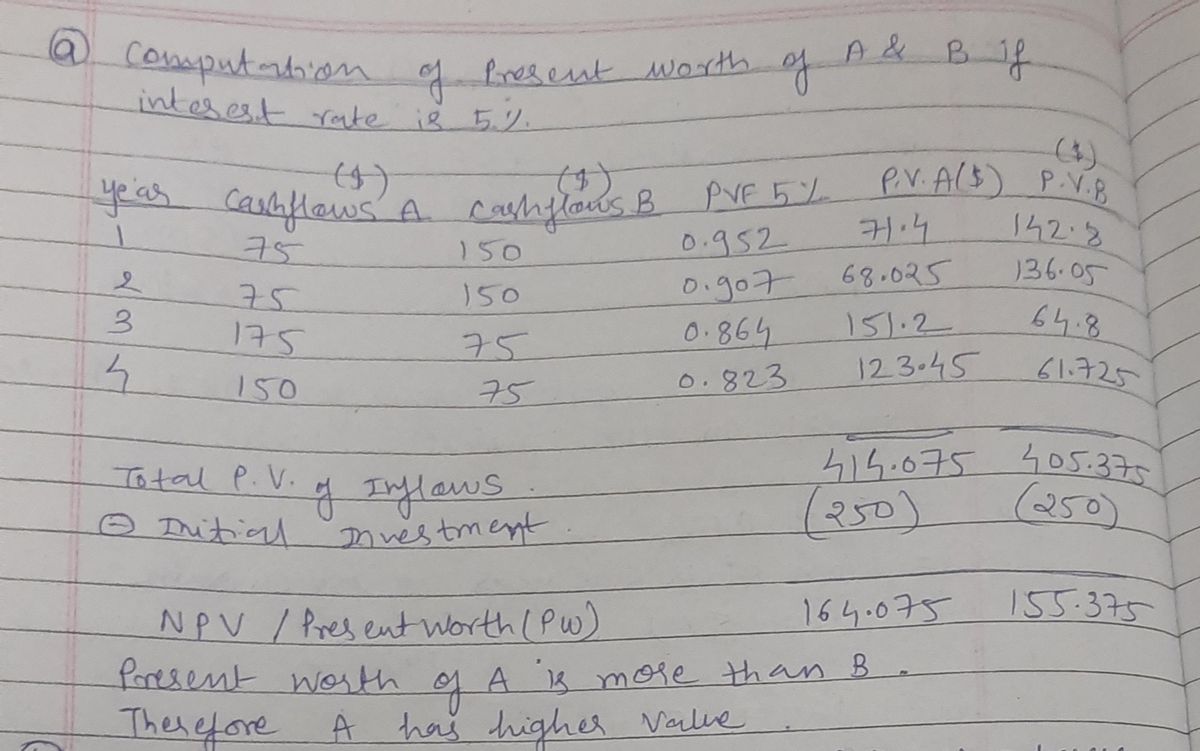 (a) Computation of Present worth of A & B if
interest rate is 5%.
($)
year Cashflows A ($) Cashflows B ($) PVF 5% P.V.A($) P.V.B
1 75 150 0.952 71.4 142.8
2 75 150 0.907 68.025 136.05
3 175 75 0.864 151.2 64.8
4 150 75 0.823 123.45 61.725
Total P.V. of Inflows. 414.075 405.375
(-) Initial Investment. (250) (250)
NPV / Present worth (PW) 164.075 155.375
Present worth of A is more than B.
Therefore A has higher value.